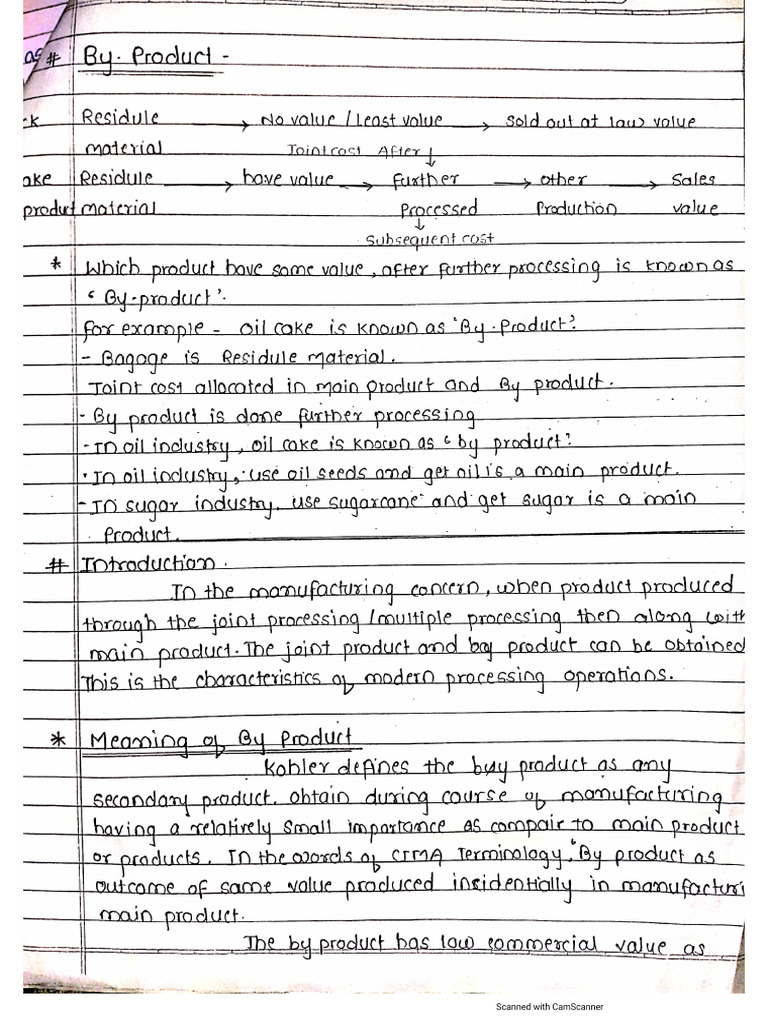 as # By. Product -
k Residule → No value / Least value → Sold out at law value
material Joint cost After ↓
ake Residule → have value → further → other → Sales
product material Processed Production value
↓
Subsequent cost
* Which product have some value, after further processing is known as
' By-product'.
For example - oil cake is known as 'By-Product'.
- Bagage is Residule Material.
Joint cost allocated in main product and By product.
- By product is done further processing
- In oil industry, oil cake is known as ' by product'.
· In oil industry, use oil seeds and get oil is a main product.
- In sugar industry, use sugarcane and get sugar is a main
Product.
# Introduction.
In the manufacturing concern, when product produced
through the joint processing / multiple processing then along with
main product. The joint product and by product can be obtained
This is the characteristics of modern processing operations.
* Meaning of By Product
Kohler defines the buy product as any
secondary product. obtain during course of manufacturing
having a relatively small importance as compair to main product
or products. In the words of CIMA Terminology, "By product as
outcome of same value produced incidentially in manufacturi
main product.
The by product has low commercial value as
Scanned with CamScanner